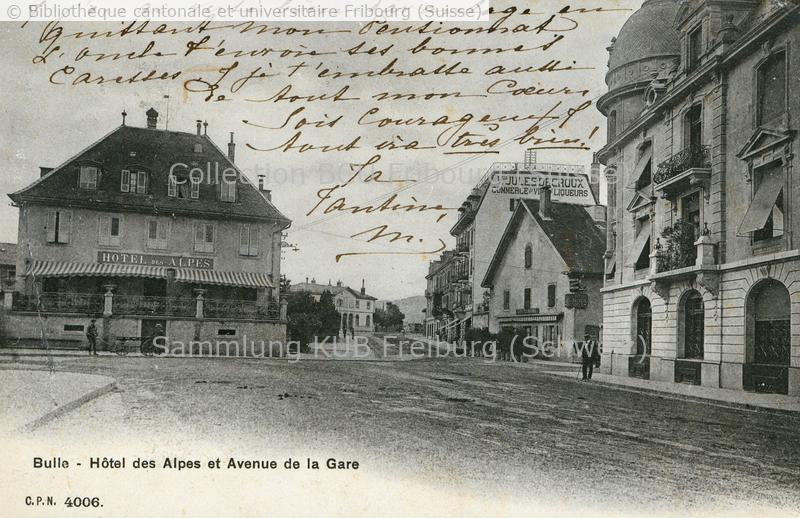 © Bibliothèque cantonale et universitaire Fribourg (Suisse)
en
quittant mon Pensionnat
L'oncle t'envoie ses bonnes
Caresses & je t'embrasse aussi
de tout mon Cœur.
Sois Courageux &
tout ira très bien!
Ta
Tantine
M.
Collection BCU Fribourg
HÔTEL DES ALPES
JULES DECROUX
COMMERCE DE VINS & LIQUEURS
Sammlung KUB Freiburg (Schweiz)
Bulle - Hôtel des Alpes et Avenue de la Gare
C.P.N. 4006.